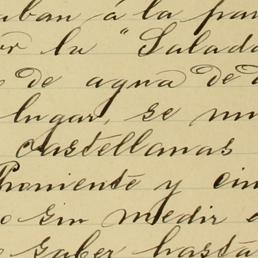 uban á la pa
or la "Salad
de agua de
lugar, se mu
castellanas
Proniente y cin
o sin medir e
saber hasta